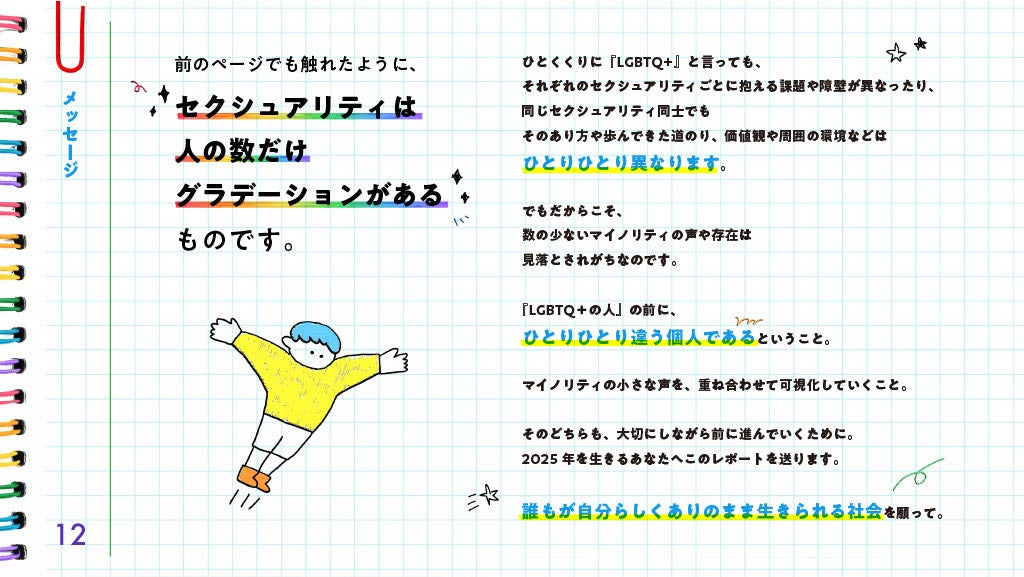 メッセージ
前のページでも触れたように、
セクシュアリティは
人の数だけ
グラデーションがある
ものです。
ひとくくりに『LGBTQ+』と言っても、
それぞれのセクシュアリティごとに抱える課題や障壁が異なったり、
同じセクシュアリティ同士でも
そのあり方や歩んできた道のり、価値観や周囲の環境などは
ひとりひとり異なります。
でもだからこそ、
数の少ないマイノリティの声や存在は
見落とされがちなのです。
『LGBTQ+の人』の前に、
ひとりひとり違う個人であるということ。
マイノリティの小さな声を、重ね合わせて可視化していくこと。
そのどちらも、大切にしながら前に進んでいくために。
2025年を生きるあなたへこのレポートを送ります。
誰もが自分らしくありのまま生きられる社会を願って。
12